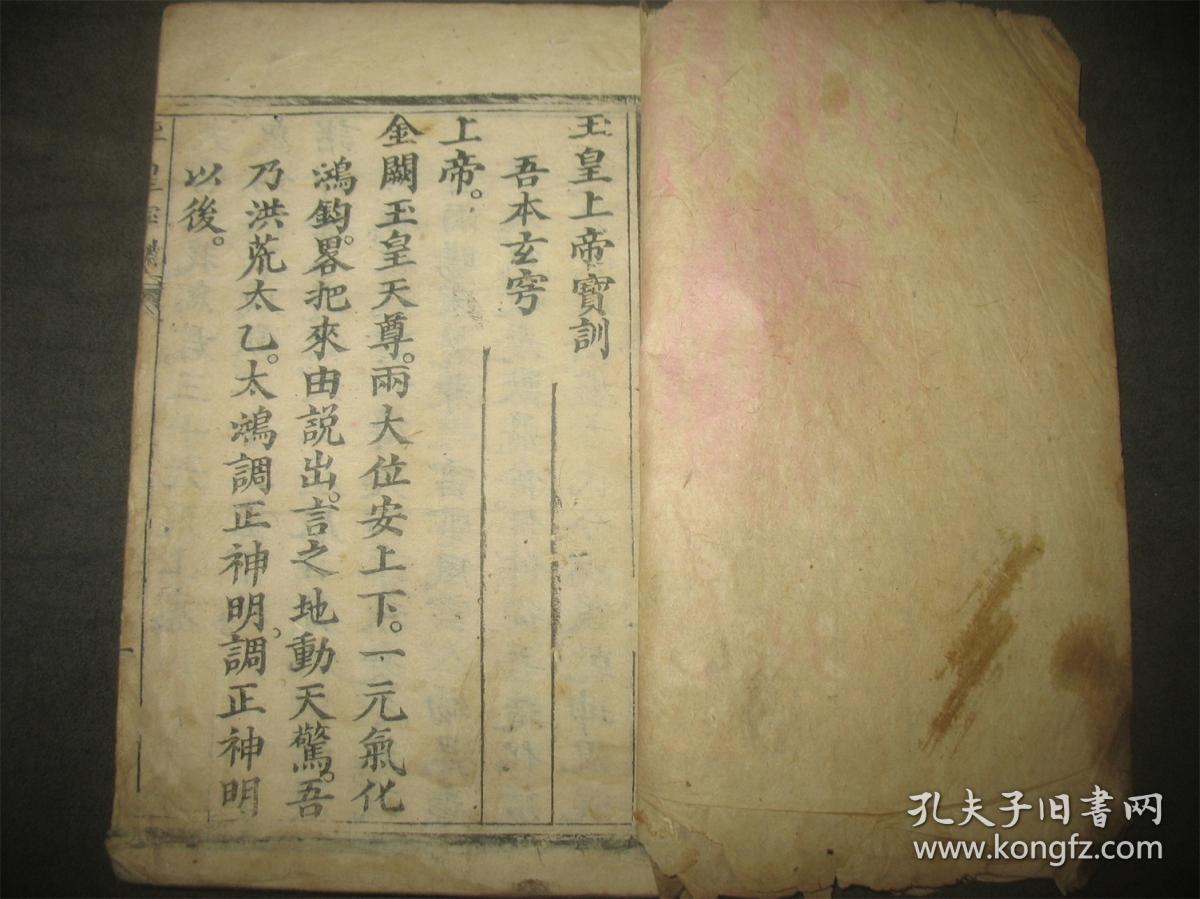 玉皇上帝寶訓
吾本玄穹
上帝。
金闕玉皇天尊。兩大位安上下。一元氣化
鴻鈞。畧把來由說出。言之地動天驚。吾
乃洪荒太乙。太鴻調正神明。調正神明
以後。
孔夫子旧书网
www.kongfz.com